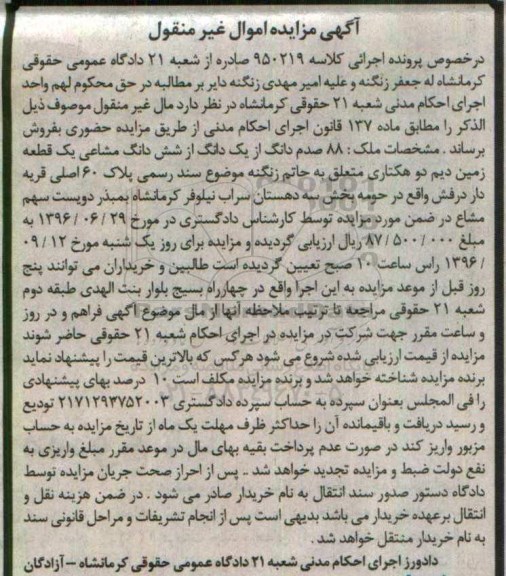 آگهی مزایده اموال غیر منقول
درخصوص پرونده اجرائی کلاسه ۹۵۰۲۱۹ صادره از شعبه ۲۱ دادگاه عمومی حقوقی
کرمانشاه له جعفر زنگنه و علیه امیر مهدی زنگنه دایر بر مطالبه در حق محکوم لهم واحد
اجرای احکام مدنی شعبه ۲۱ حقوقی کرمانشاه در نظر دارد مال غیر منقول موصوف ذیل
الذکر را مطابق ماده ۱۳۷ قانون اجرای احکام مدنی از طریق مزایده حضوری بفروش
برساند . مشخصات ملک : ۸۸ صدم دانگ از یک دانگ از شش دانگ مشاعی یک قطعه
زمین دیم دو هکتاری متعلق به حاتم زنگنه موضوع سند رسمی پلاک ۶۰ اصلی قریه
دار درفش واقع در حومه بخش سه دهستان سراب نیلوفر کرمانشاه بمیذر دویست سهم
مشاع در ضمن مورد مزایده توسط کارشناس دادگستری در مورخ ۲۹ / ۰۶ / ۱۳۹۶ به
مبلغ ۸۷/۵۰۰/۰۰۰ ریال ارزیابی گردیده و مزایده برای روز یک شنبه مورخ ۱۲ / ۰۹
/ ۱۳۹۶ راس ساعت ۱۰ صبح تعیین گردیده است طالبین و خریداران می توانند پنج
روز قبل از موعد مزایده به این اجرا واقع در چهارراه بسیج بلوار بنت الهدی طبقه دوم
شعبه ۲۱ حقوقی مراجعه تا ترتیب ملاحظه آنها از مال موضوع آگهی فراهم و در روز
و ساعت مقرر جهت شرکت در مزایده در اجرای احکام شعبه ۲۱ حقوقی حاضر شوند
مزایده از قیمت ارزیابی شده شروع می شود هرکس که بالاترین قیمت را پیشنهاد نماید
برنده مزایده شناخته خواهد شد و برنده مزایده مکلف است ۱۰ درصد بهای پیشنهادی
را فی المجلس بعنوان سپرده به حساب سپرده دادگستری ۲۱۷۱۲۹۳۷۵۲۰۰۳ تودیع
و رسید دریافت و باقیمانده آن را حداکثر ظرف مهلت یک ماه از تاریخ مزایده به حساب
مزبور واریز کند در صورت عدم پرداخت بقیه بهای مال در موعد مقرر مبلغ واریزی به
نفع دولت ضبط و مزایده تجدید خواهد شد .. پس از احراز صحت جریان مزایده توسط
دادگاه دستور صدور سند انتقال به نام خریدار صادر می شود . در ضمن هزینه نقل و
انتقال برعهده خریدار می باشد بدیهی است پس از انجام تشریفات و مراحل قانونی سند
به نام خریدار منتقل خواهد شد .
دادورز اجرای احکام مدنی شعبه ۲۱ دادگاه عمومی حقوقی کرمانشاه - آزادگان